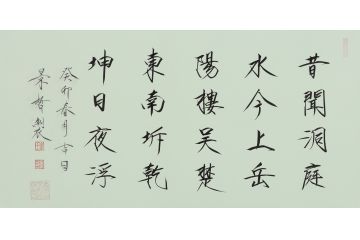 昔聞洞庭
水今上岳
陽樓吳楚
東南坼乾
坤日夜浮
癸卯春月吉日